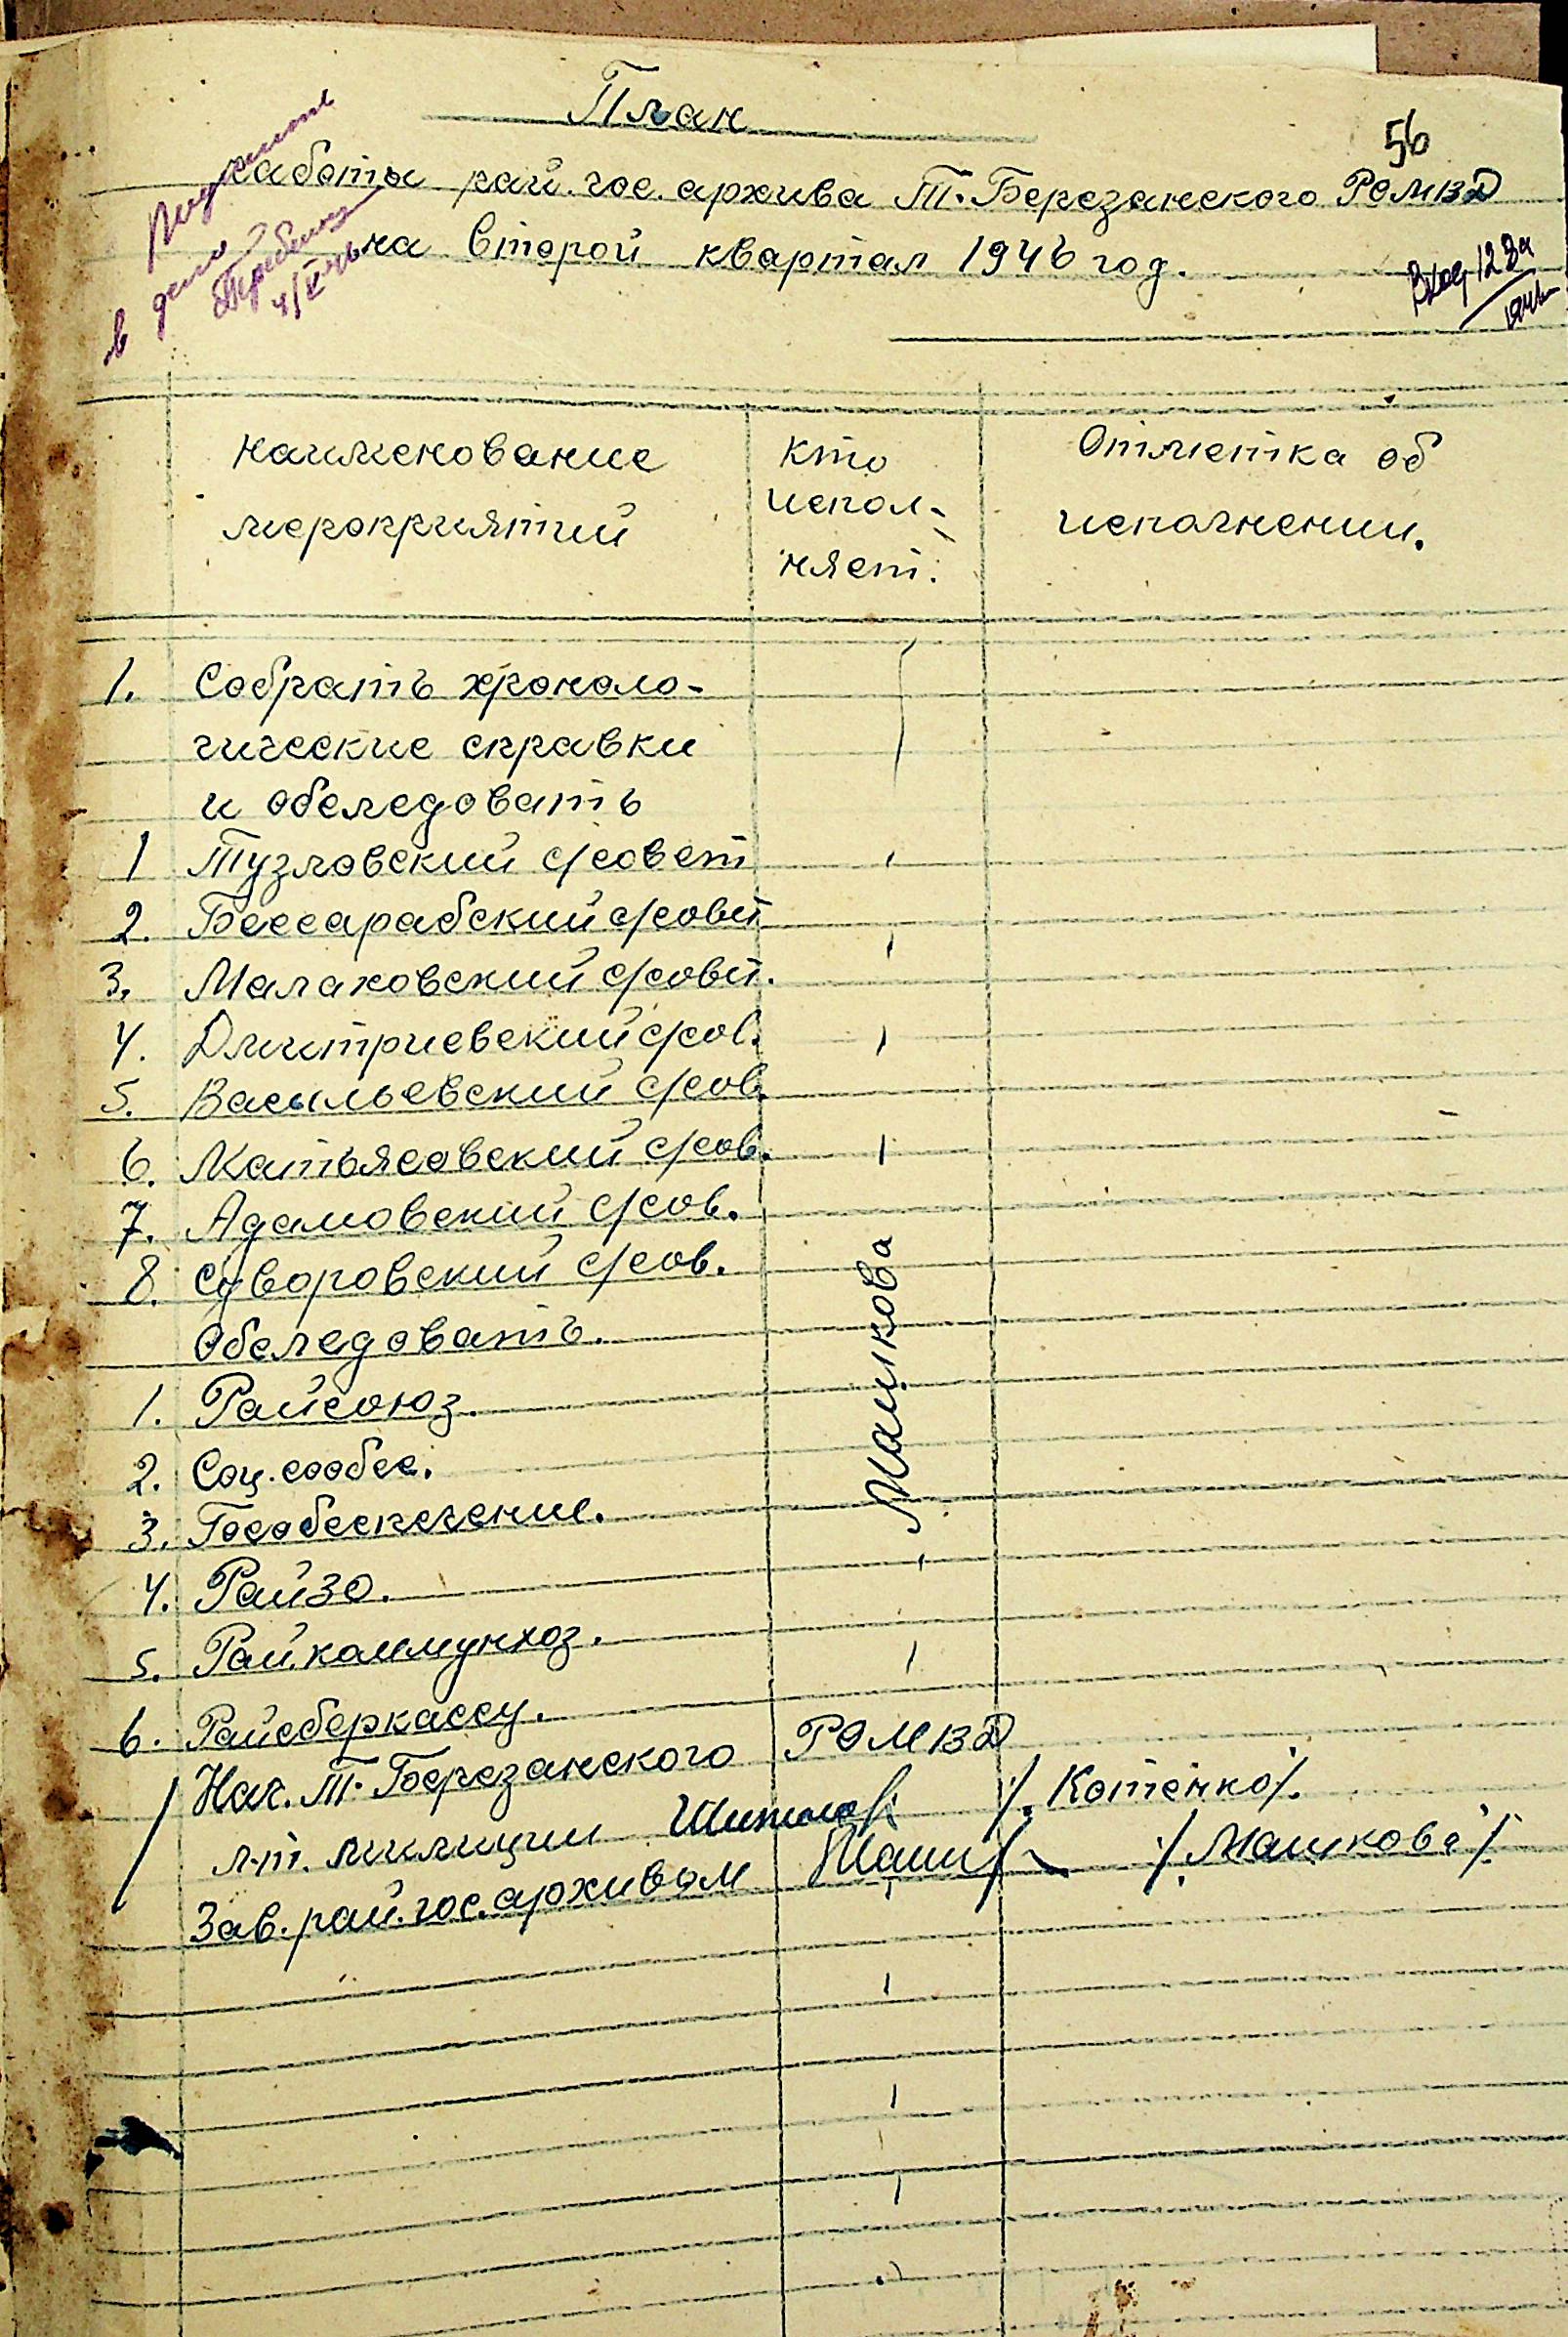 План
56
работы рай. гос. архива Т. Березанского РОМВД
на второй квартал 1946 год.
в дело
Вход 128а
наименование
мероприятий
кто
испол-
няет.
Отметка об
исполнении.
1. Собрать хроноло-
гические справки
и обследовать
1 Тузловский с/совет
2. Бессарабский с/совет
3. Малаховский с/совет.
4. Дмитриевский с/сов.
5. Васыльевский с/сов.
6. Матьясовский с/сов.
7. Адамовский с/сов.
8. Суворовский с/сов.
Обследовать.
1. Райсоюз.
2. Соц. сообес.
3. Гособеспечение.
4. Райзо.
5. Райкоммунхоз.
6. Райсберкассу.
Машкова
Нач. Т. Березанского РОМВД
л-т. милиции /. Котенко/.
Зав. рай. гос. архивом /. Машкова/.